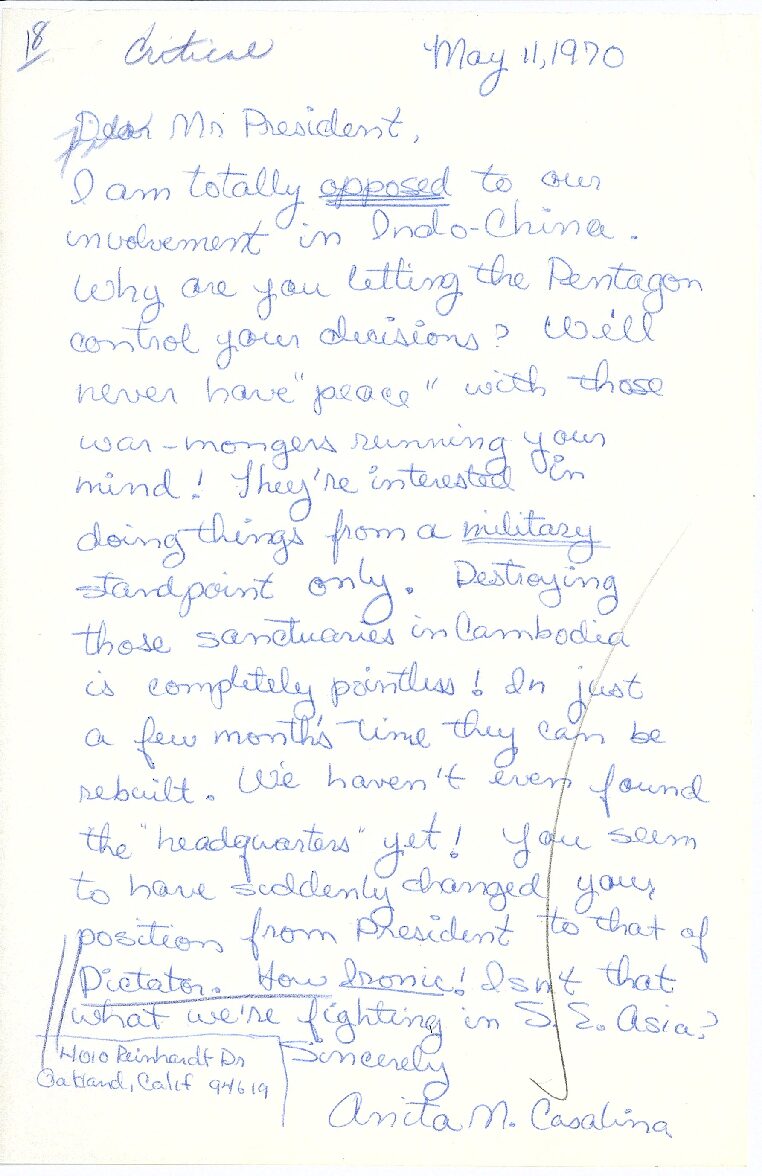 18 Critical May 11, 1970
Dear Mr President,
I am totally opposed to our
involvement in Indo-China.
Why are you letting the Pentagon
control your decisions? We'll
never have "peace" with those
war-mongers running your
mind! They're interested in
doing things from a military
standpoint only. Destroying
those sanctuaries in Cambodia
is completely pointless! In just
a few month's time they can be
rebuilt. We haven't even found
the "headquarters" yet! You seem
to have suddenly changed your
position from President to that of
Dictator. How Ironic! Isn't that
what we're fighting in S.E. Asia?
Sincerely
4010 Reinhardt Dr
Oakland, Calif 94619
Anita N. Casalina